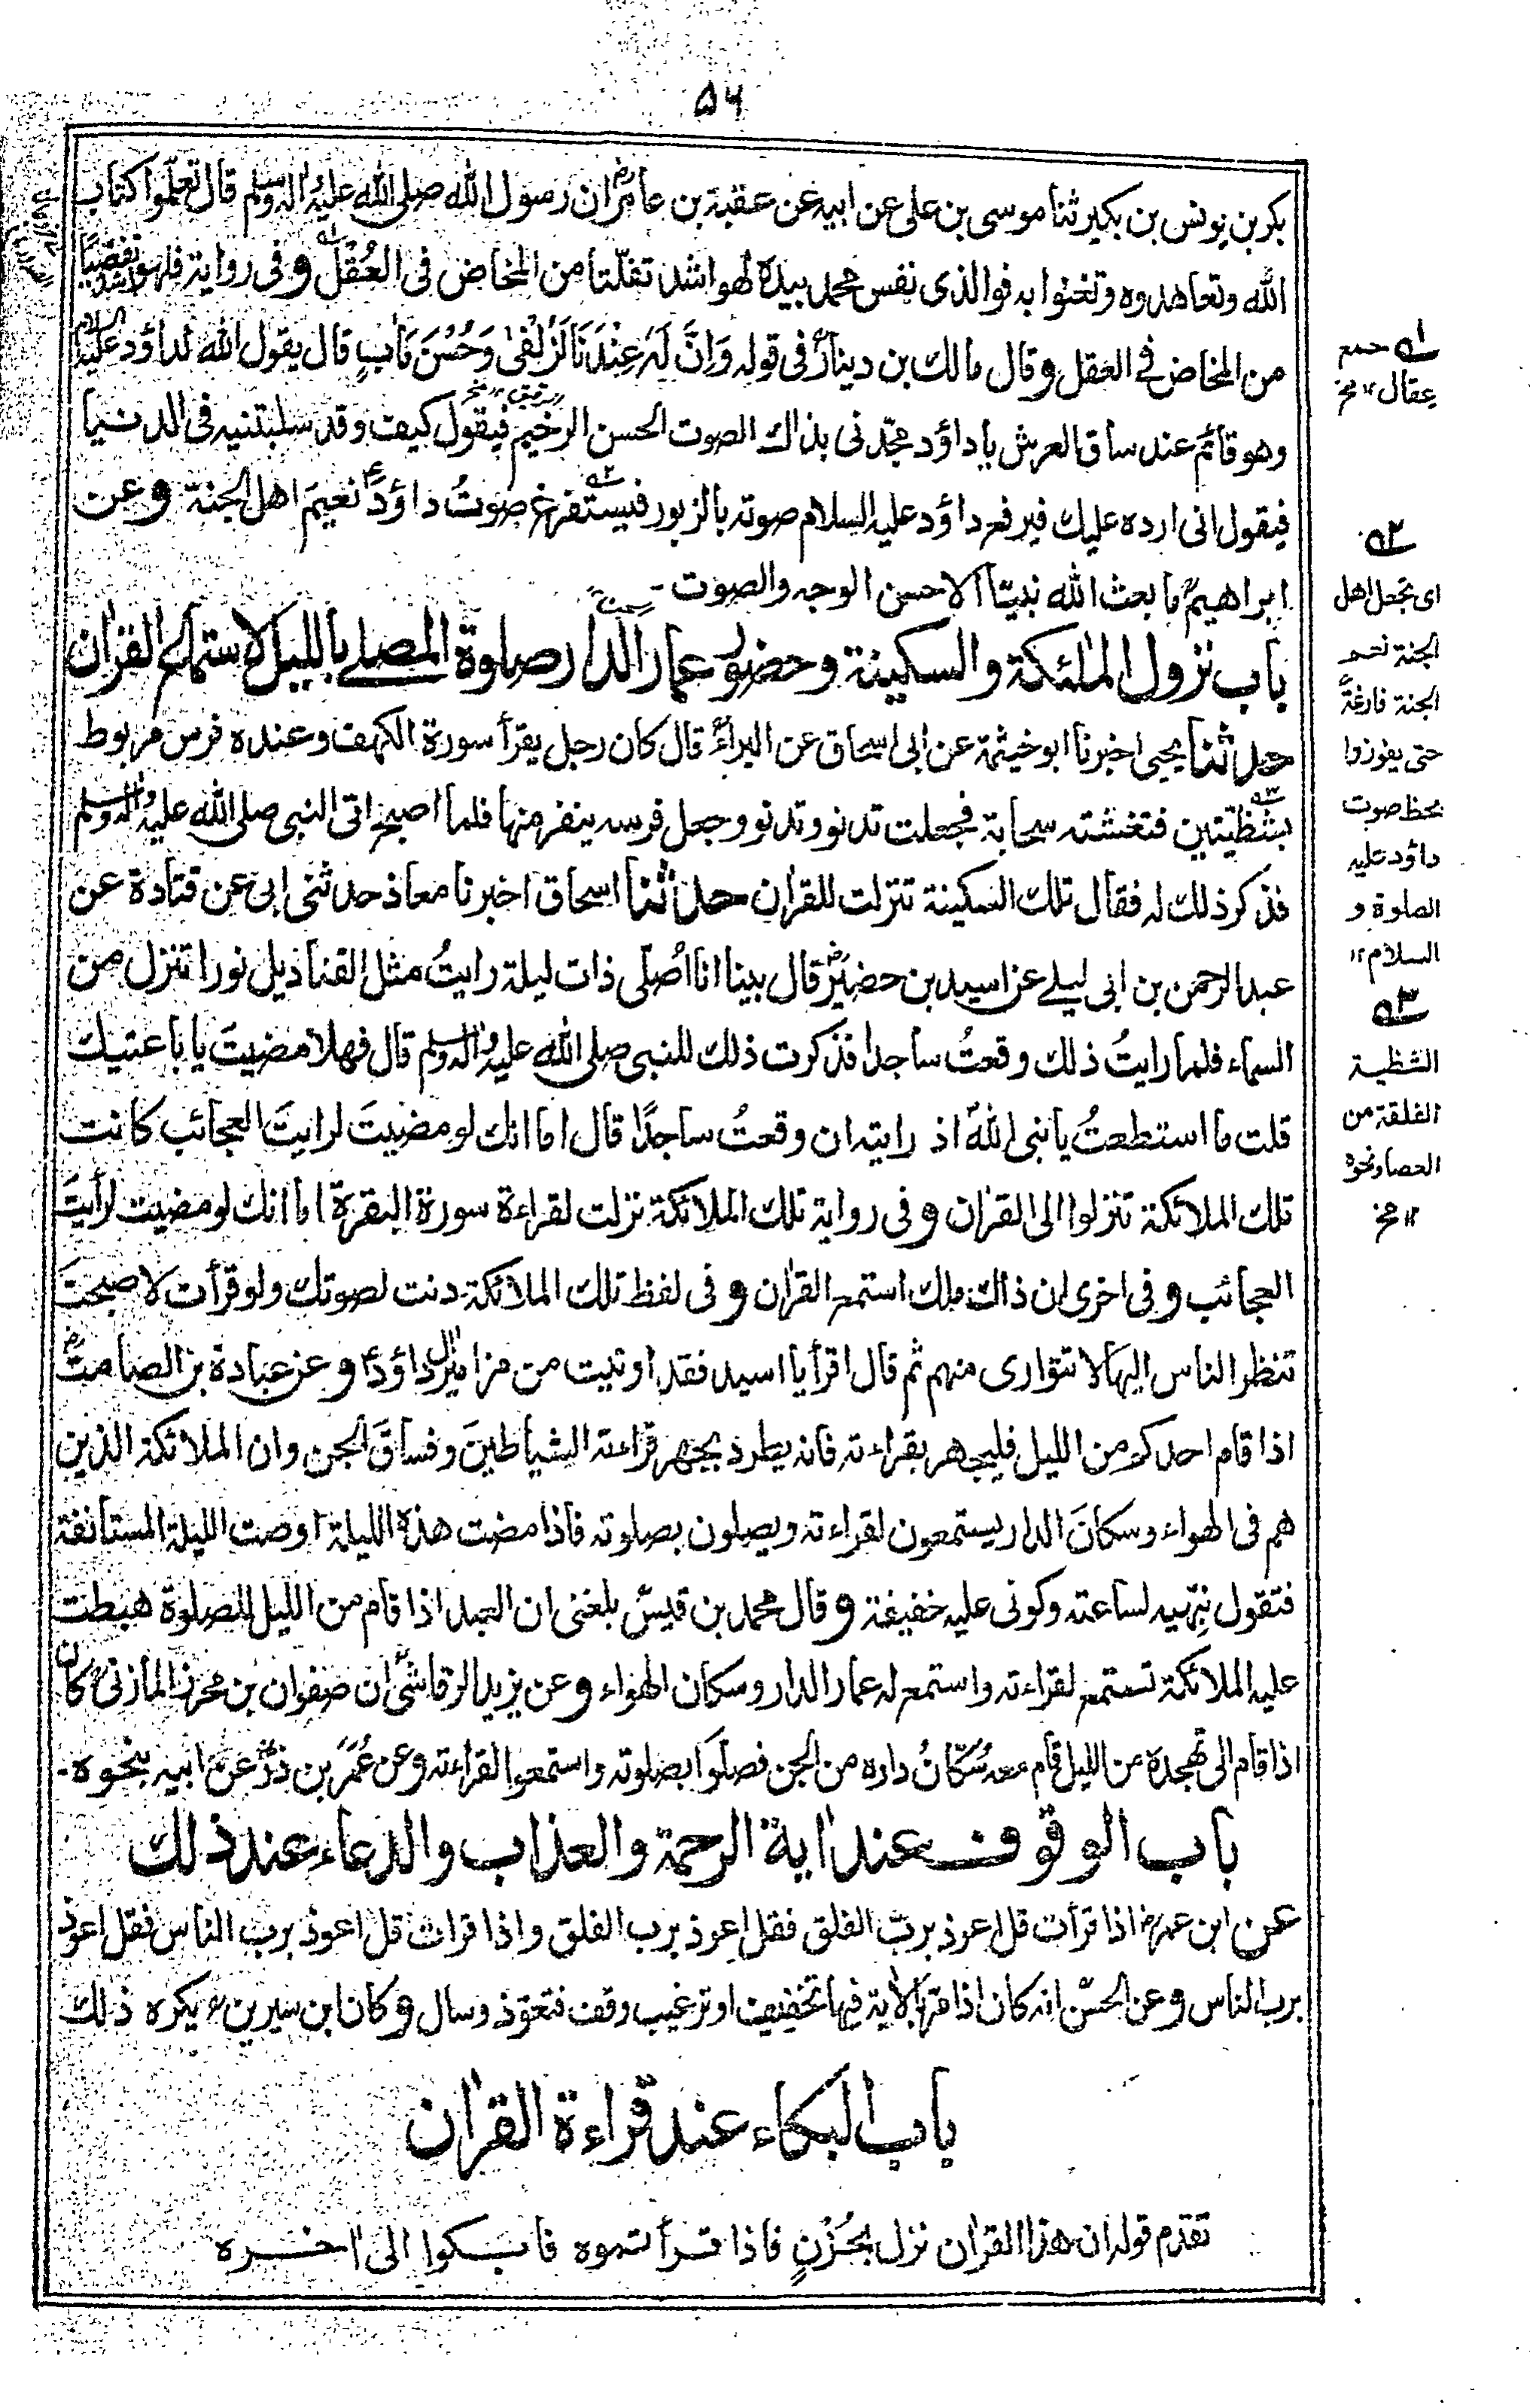 ۵۶
بكر بن يونس بن بكير ثنا موسى بن على عن ابيه عن عقبة بن عامرؓ ان رسول الله صلى الله عليه واله وسلم قال تعلموا كتاب
الله وتعاهدوه وتغنوا به فوالذى نفس محمد بيده لهو اشد تفلّتا من المخاض فى العُقُل وفى رواية فلهو اشد تفصّيًا
من المخاض فى العقل وقال مالك بن دينارؒ فى قوله وَاِنَّ لَهٗ عِنْدَنَا لَزُلْفٰى وَحُسْنَ مَاٰبٍ قال يقول الله لداؤد عليه السلام
وهو قائم عند ساق العرش يا داؤد مجّدنى بذاك الصوت الحسن الرخيم فيقول كيف وقد سلبتنيه فى الدنيا
فيقول انى ارده عليك فيرفع داؤد عليه السلام صوته بالزبور فيستفرغ صوتُ داؤدؑ نعيمَ اهل الجنة وعن
ابراهيمؒ ما بعث الله نبيّا الا حسن الوجه والصوت -
باب نزول الملٰئكة والسكينة وحضور عمار الدار صلوة المصلے بالليل لاستماع القراٰن
حدثنا يحيى اخبرنا ابو خيثمة عن ابى اسحاق عن البراءؓ قال كان رجل يقرأ سورة الكهف وعنده فرس مربوط
بشظيّتين فتغشته سحابة فجعلت تدنو وتدنو وجعل فرسه ينفر منها فلما اصبح اتى النبى صلى الله عليه واله وسلم
فذكر ذلك له فقال تلك السكينة تنزلت للقراٰن حدثنا اسحاق اخبرنا معاذ حدثنى ابى عن قتادة عن
عبد الرحمن بن ابى ليلے عن اسيد بن حضيرؓ قال بينا انا اُصلّى ذات ليلة رايتُ مثل القناديل نورا تنزل من
السماء فلما رايتُ ذلك وقعتُ ساجدا فذكرت ذلك للنبى صلى الله عليه واله وسلم قال فهلا مضيتَ يا با عتيك
قلت ما استطعتُ يا نبى الله اذ رايته ان وقعتُ ساجدًا قال اما انك لو مضيتَ لرايتَ العجائب كانت
تلك الملائكة تنزلوا الى القراٰن وفى رواية تلك الملائكة نزلت لقراءة سورة البقرة اما انك لو مضيت لرأيتَ
العجائب وفى اخرى ان ذاك ملك استمع القراٰن وفى لفظ تلك الملائكة دنت لصوتك ولو قرأت لاصبحتَ
تنظر الناس اليها لا تتوارى منهم ثم قال اقرأ يا اسيد فقد اوتيت من مزامير اٰل داؤدؑ وعن عبادة بن الصامتؓ
اذا قام احدكم من الليل فليجهر بقراءته فانه يطرد بجهر قراءته الشياطينَ وفساقَ الجن وان الملائكة الذين
هم فى الهواء وسكانَ الدار يستمعون لقراءته ويصلون بصلوته فاذا مضت هذه الليلة اوصت الليلة المستانفة
فتقول نبّهيه لساعته وكونى عليه خفيفة وقال محمد بن قيسؒ بلغنى ان العبد اذا قام من الليل للصلوة هبطت
عليه الملائكة تستمع لقراءته واستمع له عمار الدار وسكان الهواء وعن يزيد الرقاشىؒ ان صفوان بن محرز المازنىؒ كان
اذا قام الى تهجده من الليل قام معه سُكّانُ داره من الجن فصلّوا بصلوته واستمعوا لقراءته وعن عُمَرَ بن ذرؒ عن ابيه بنحوه-
باب الوقوف عند اٰية الرحمة والعذاب والدعاء عند ذلك
عن ابن عمرؓ اذا قرأت قل اعوذ بربّ الفلق فقل اعوذ برب الفلق واذا قرات قل اعوذ برب الناس فقل اعوذ
برب الناس وعن الحسنؒ انه كان اذا قرأ الاٰية فيها تخفيف او ترغيب وقف فتعوّذ وسال وكان ابن سيرينؒ يكره ذلك
باب البكاء عند قراءة القراٰن
تقدم قوله ان هذا القراٰن نزل بحُزْنٍ فاذا قرأتموه فابكوا الى اٰخره
۱ جمع
عقال ۱۲ مخ
۲
اى تجعل اهل
الجنة نعيم
الجنة فارغةً
حتى يفوزوا
بحظ صوت
داؤد عليه
الصلوة و
السلام ۱۲
۳
الشظية
الفلقة من
العصا ونحوه
۱۲ مخ